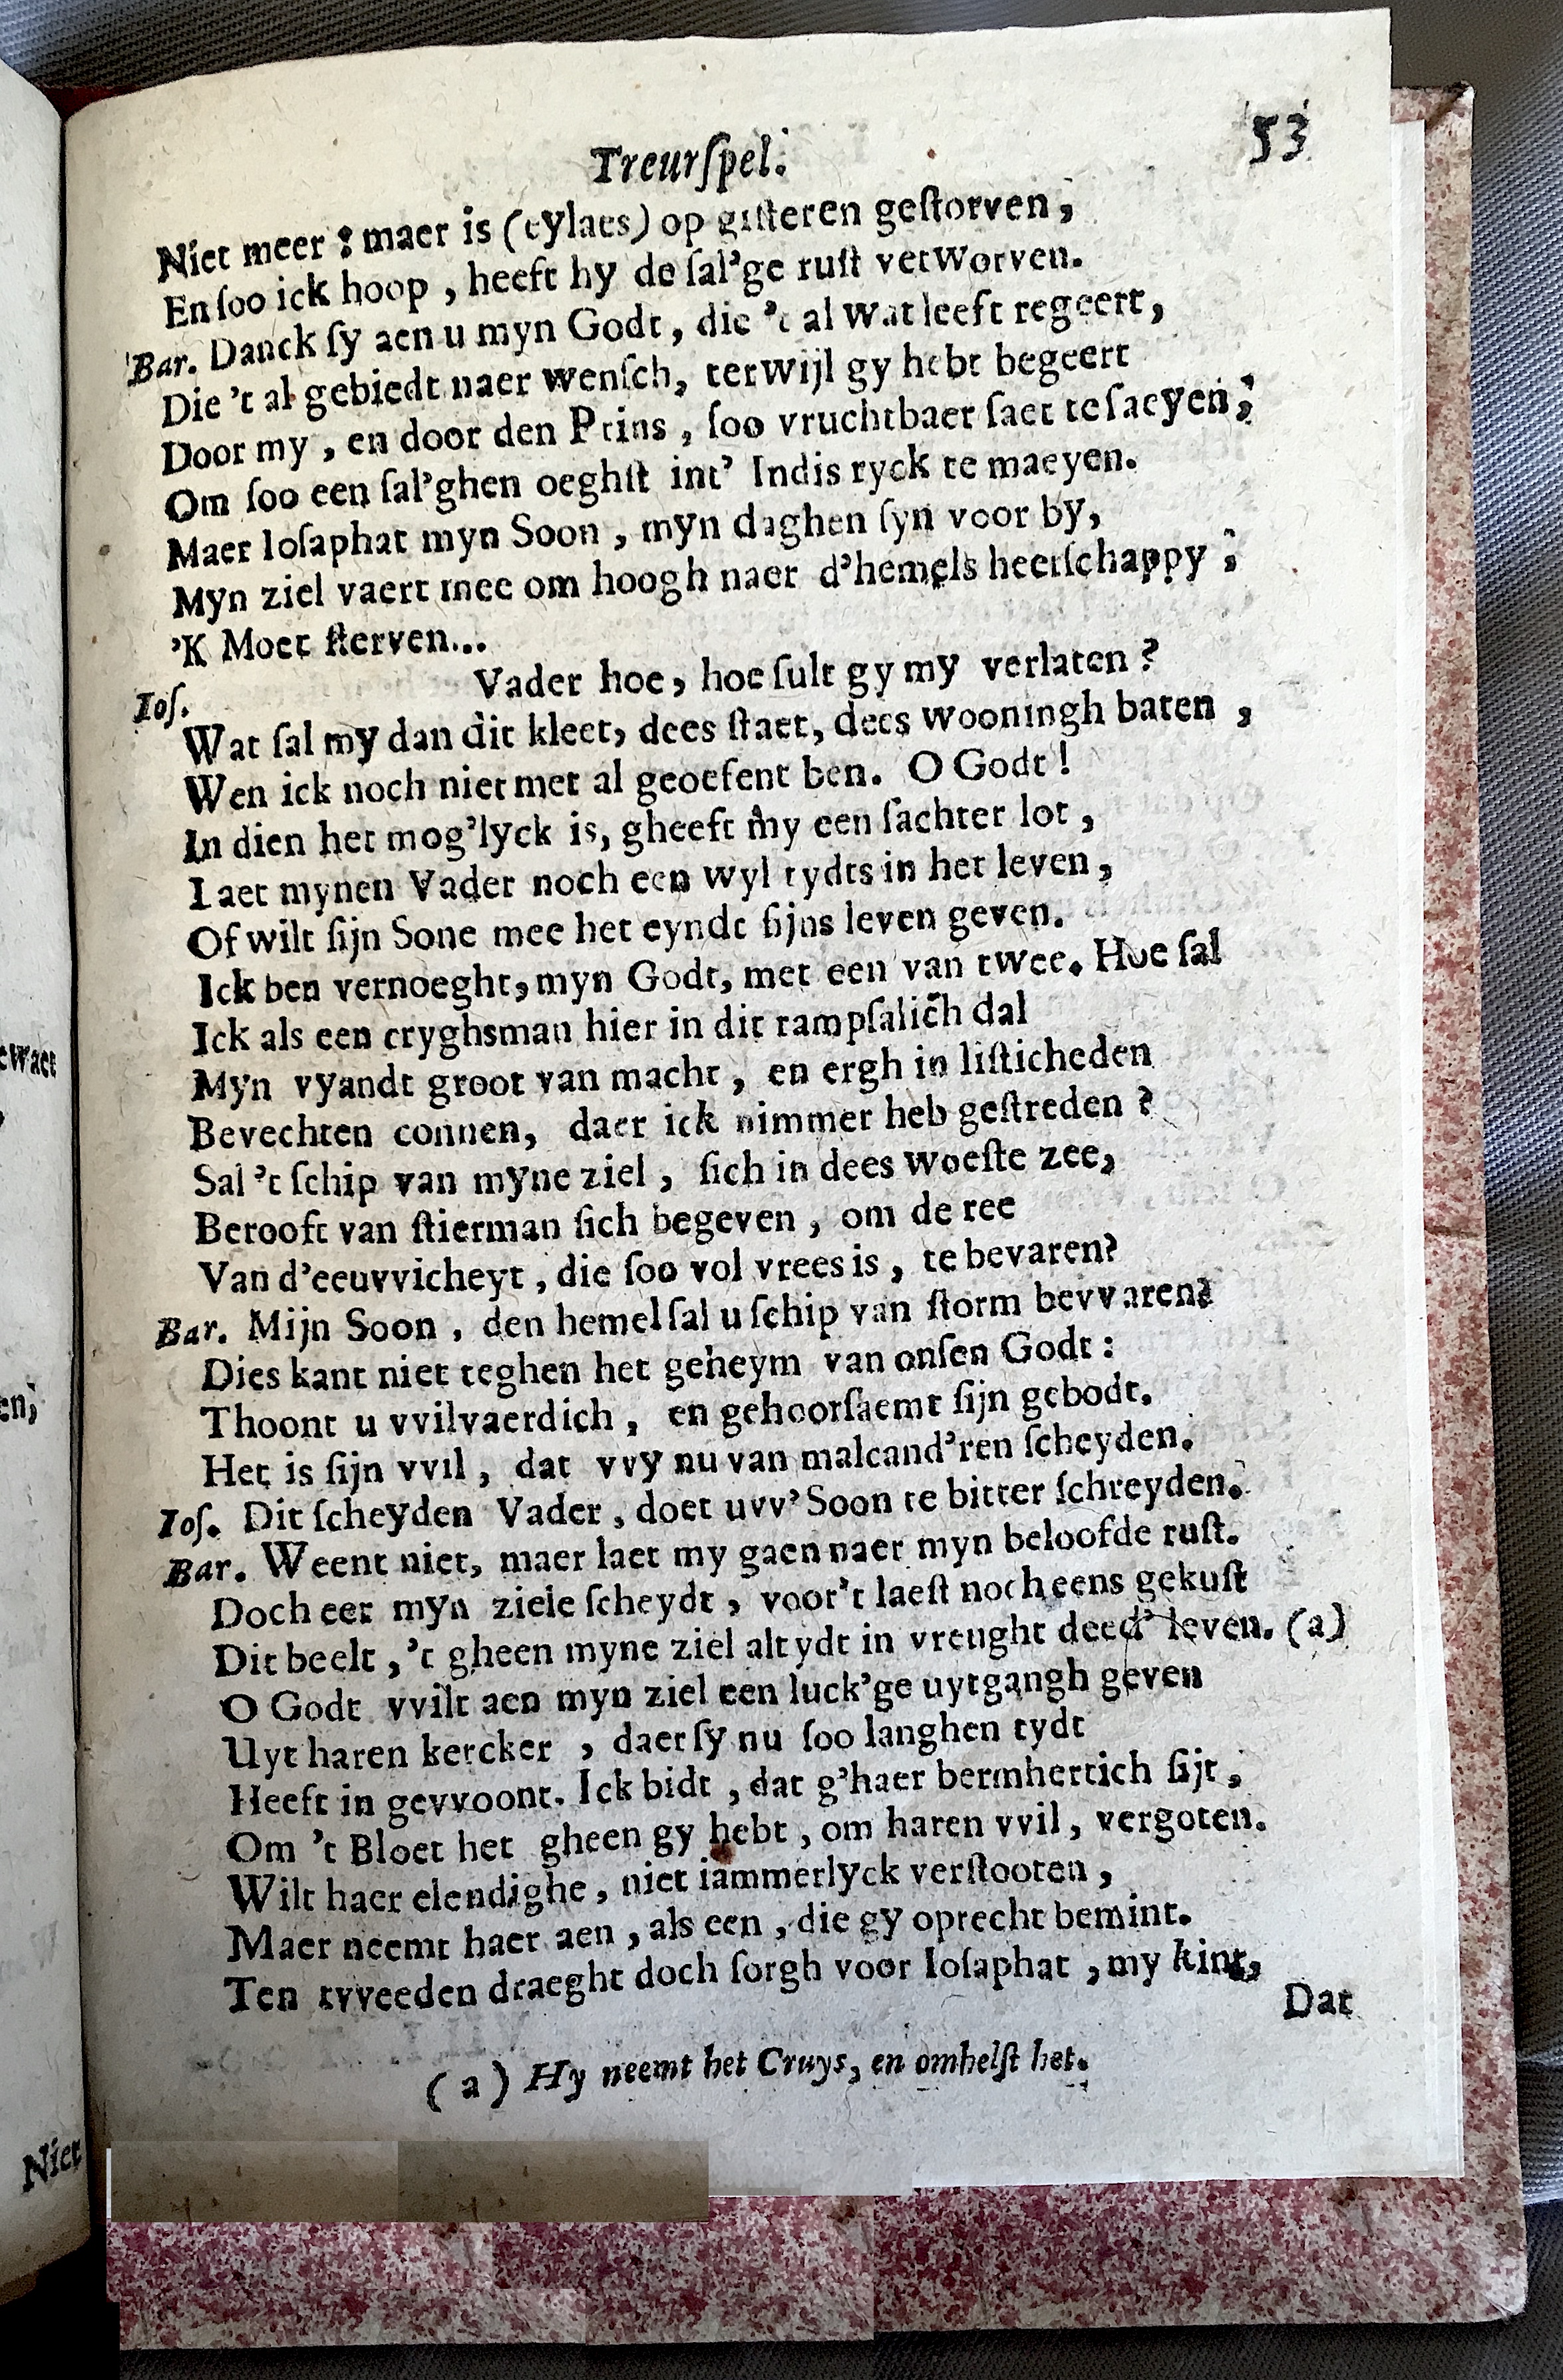 Treurſpel. 53
Niet meer : maer is (eylaes) op giſteren geſtorven,
En ſoo ick hoop , heeft hy de ſal’ge ruſt verworven.
Bar. Danck ſy aen u myn Godt, die ’t al wat leeft regeert,
Die ’t al gebiedt naer wenſch, terwijl gy hebt begeert
Door my , en door den Prins , ſoo vruchtbaer ſaet te ſaeyen;
Om ſoo een ſal’ghen oeghſt int’ Indis ryck te maeyen.
Maer Ioſaphat myn Soon , myn daghen ſyn voor by,
Myn ziel vaert mee om hoogh naer d’hemels heerſchappy ;
’K Moet ſterven...
Ioſ. Vader hoe, hoe ſult gy my verlaten ?
Wat ſal my dan dit kleet, dees ſtaet, dees wooningh baten ,
Wen ick noch niet met al geoefent ben. O Godt !
In dien het mog’lyck is, gheeft my een ſachter lot ,
Laet mynen Vader noch een wyl tydts in het leven ,
Of wilt ſijn Sone mee het eyndt ſijns leven geven.
Ick ben vernoeght, myn Godt, met een van twee. Hoe ſal
Ick als een cryghsman hier in dit rampſalich dal
Myn vyandt groot van macht , en ergh in liſticheden
Bevechten connen, daer ick nimmer heb geſtreden ?
Sal ’t ſchip van myne ziel , ſich in dees woeſte zee,
Berooft van ſtierman ſich begeven , om de ree
Van d’eeuvvicheyt , die ſoo vol vrees is , te bevaren?
Bar. Mijn Soon , den hemel ſal u ſchip van ſtorm bevvaren?
Dies kant niet teghen het geheym van onſen Godt :
Thoont u vvilvaerdich , en gehoorſaemt ſijn gebodt.
Het is ſijn vvil , dat vvy nu van malcand’ren ſcheyden.
Ioſ. Dit ſcheyden Vader , doet uvv’ Soon te bitter ſchreyden.
Bar. Weent niet, maer laet my gaen naer myn beloofde ruſt.
Doch eer myn ziele ſcheydt , voor’t laeſt noch eens gekuſt
Dit beelt , ’t gheen myne ziel altydt in vreught deed’ leven. (a)
O Godt vvilt aen myn ziel een luck’ge uytgangh geven
Uyt haren kercker , daer ſy nu ſoo langhen tydt
Heeft in gevvoont. Ick bidt , dat g’haer bermhertich ſijt ,
Om ’t Bloet het gheen gy hebt , om haren vvil , vergoten.
Wilt haer elendighe , niet iammerlyck verſtooten ,
Maer neemt haer aen , als een , die gy oprecht bemint.
Ten tvveeden draeght doch ſorgh voor Ioſaphat , my kint,
Dat
(a) Hy neemt het Cruys, en omhelſt het.
ewaet
en;
Niet